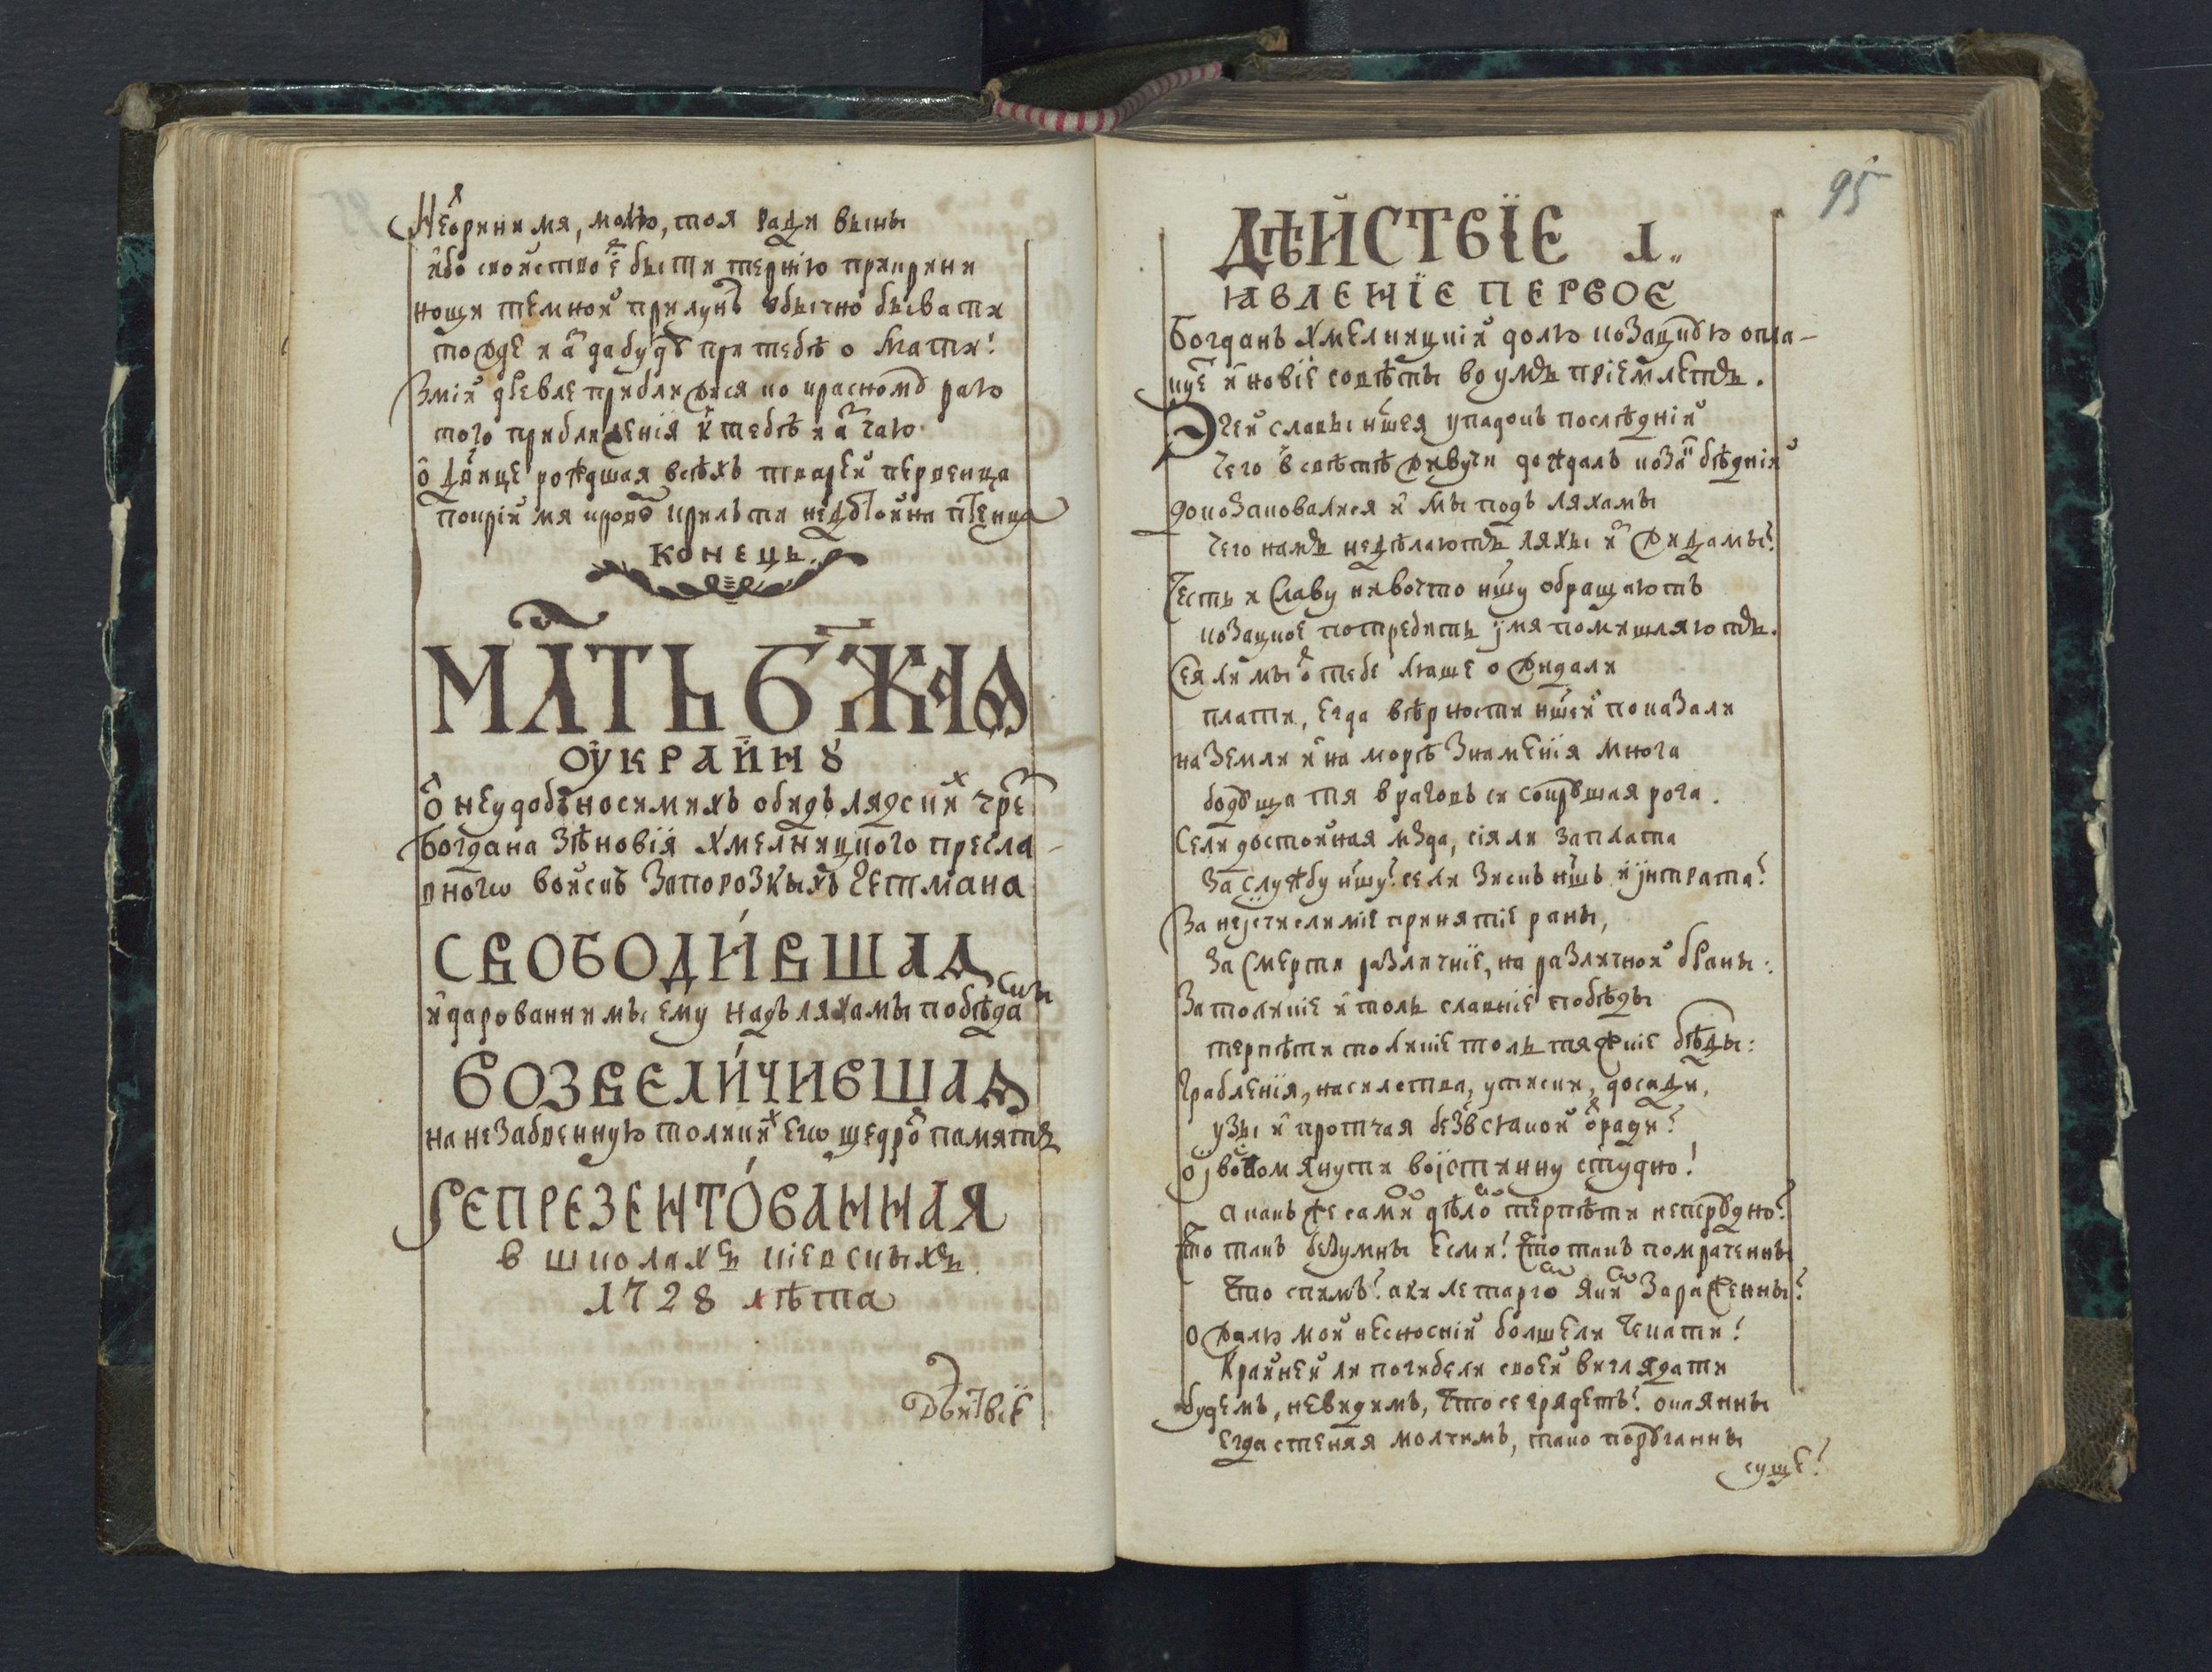 Не ѿрини мя, молю, тоя ради вины
ибо свойство є быти тернїю при крини
нощи темной при лунѣ обычно бывати
тожде и аз да буду при тебѣ о Мати!
Змій древле приближися ко красному раю
того приближенїя к тебѣ и аз чаю
ѽ Дѣвице рождшая всѣхъ тварей первенца
покрій мя кровом крилъ ти недостойна птенца
конецъ.
МЛ҃ТЬ БЖ҃ІѦ
ОУКРАЙНУ
ѽ неудобъносимихъ обидъ лядскихъ чрез
Богдана Зѣновїя Хмелницкого пресла-
вногѡ войскъ Запорозкыхъ Гетмана
СВОБОДИ́ВШАѦ
и дарованнимы ему надъ ляхамы побѣдамы
ВОЗВЕЛИ́ЧИВШАѦ
на незабвенную толикихъ егѡ щедротъ память
РЕПРЕЗЕНТО́ВАННАЯ
в школахъ кіевскыхъ
1728 лѣта
Дѣйствіе
95
ДѢЙСТВЇЕ 1„
ІАВЛЕНЇЕ ПЕРВОЕ
Богданъ Хмелницкій долю козацкую опла-
кует и новіе совѣты во умъ пріемлетъ.
Эгей славы ншея упадокъ послѣдній
Чего в свѣтѣ живучи дождалъ козак бѣдній
докозаковалися и мы подъ ляхамы
Чего намъ не дѣлаютъ ляхы и з жидамы?
Честь и Славу ни во что ншу обращаютъ
козацкое потребить имя помишляютъ.
Сея ли мы ѿ тебе ляше ожидали
плати, егда вѣрности ншей показали
на земли и на морѣ знаменїя многа
бодуща тя враговъ ти сокрушая рога.
Се ли достойная мзда, сія ли заплата
За службу ншу? се ли зискъ ншъ и интрата?
За неисчислиміе принятіе раны,
За Смерти различніе, на различной браны:
За толикіе и толь славніе побѣды
терпѣти толикіе толь тяжкіе бѣды:
Грабленїя, насилства, утиски, досади,
узы и протчая без всякой ѿради?
ѽ и воспомянути воистинну студно!
а какъ же самим дѣлом терпѣти не трудно?
Кто такъ безумны есми! Кто такъ помраченны
Что спимъ? аки летаргом яким зараженны?
О жалю мой несносній болше ли чекати!
Крайней ли погибели своей виглядати
будемъ, не видимъ, что се грядетъ? окаянны
егда стеняя молчимъ, тако поруганны
суще?